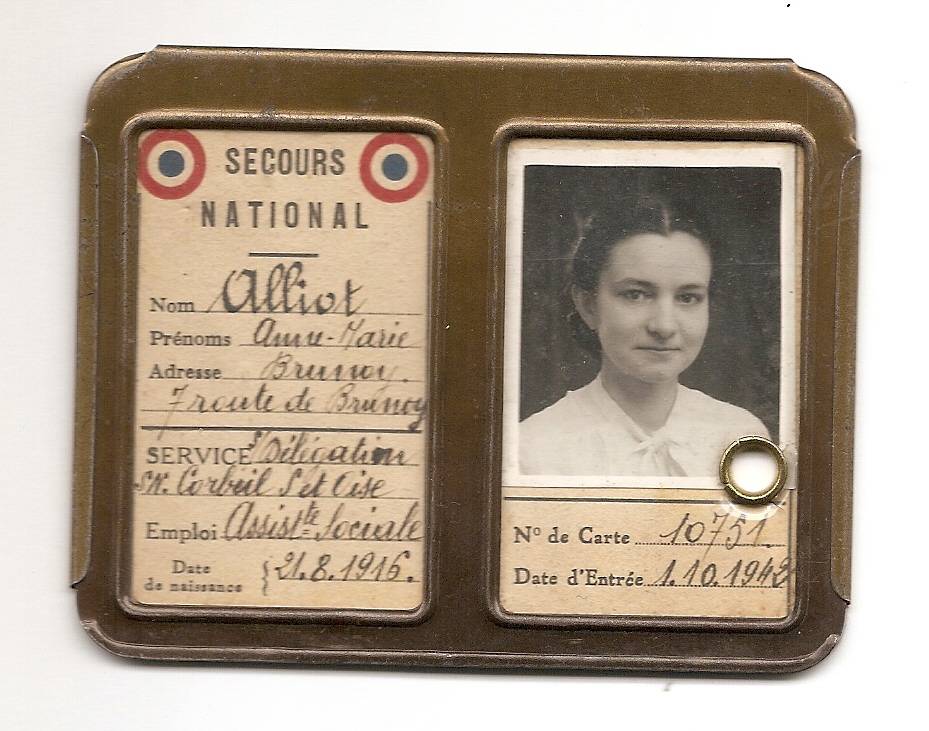 SECOURS
NATIONAL
Nom Alliot
Prénoms Anne-Marie
Adresse Brunoy.
7 route de Brunoy
SERVICE S/Délégation
SN. Corbeil S et Oise
Emploi Assiste Sociale
Date de naissance 21.8.1916.
N° de Carte 10751.
Date d'Entrée 1.10.1942